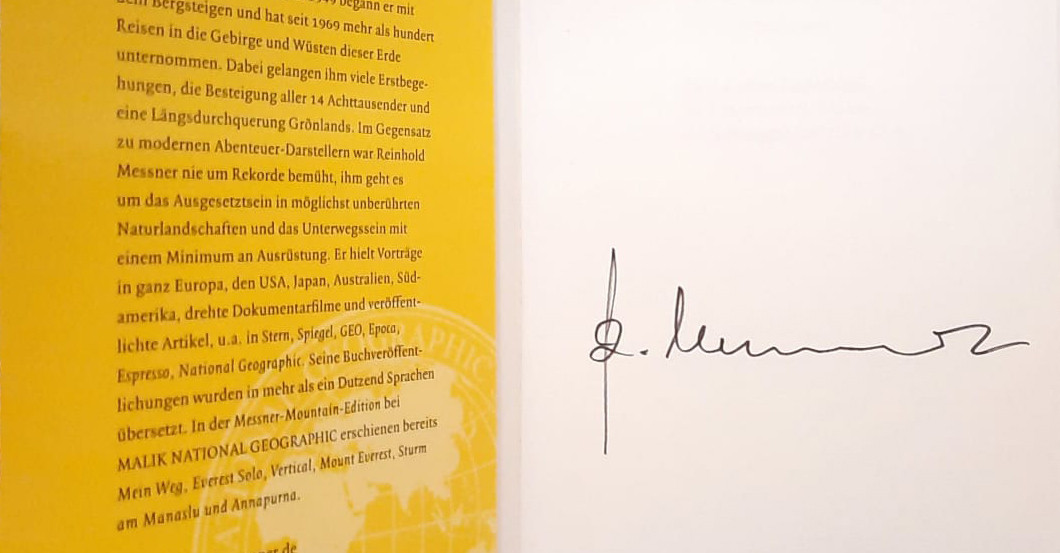 begann er mit
dem Bergsteigen und hat seit 1969 mehr als hundert
Reisen in die Gebirge und Wüsten dieser Erde
unternommen. Dabei gelangen ihm viele Erstbege-
hungen, die Besteigung aller 14 Achttausender und
eine Längsdurchquerung Grönlands. Im Gegensatz
zu modernen Abenteuer-Darstellern war Reinhold
Messner nie um Rekorde bemüht, ihm geht es
um das Ausgesetztsein in möglichst unberührten
Naturlandschaften und das Unterwegssein mit
einem Minimum an Ausrüstung. Er hielt Vorträge
in ganz Europa, den USA, Japan, Australien, Süd-
amerika, drehte Dokumentarfilme und veröffent-
lichte Artikel, u.a. in Stern, Spiegel, GEO, Epoca,
Espresso, National Geographic. Seine Buchveröffent-
lichungen wurden in mehr als ein Dutzend Sprachen
übersetzt. In der Messner-Mountain-Edition bei
MALIK NATIONAL GEOGRAPHIC erschienen bereits
Mein Weg, Everest Solo, Vertical, Mount Everest, Sturm
am Manaslu und Annapurna.
R. Messner